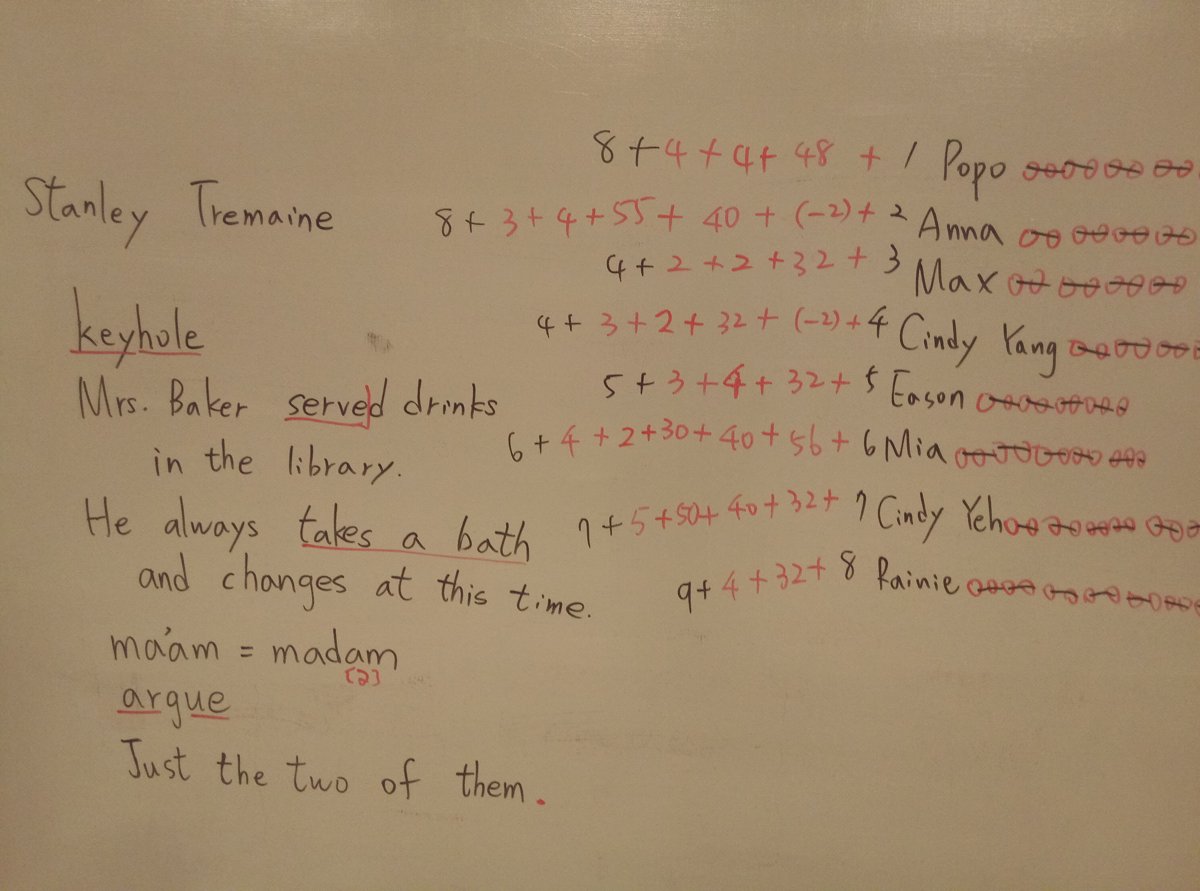 Stanley Tremaine
keyhole
Mrs. Baker served drinks
in the library.
He always takes a bath
and changes at this time.
ma'am = madam
[ə]
argue
Just the two of them.
8+4+4+48+1 Popo
8+3+4+55+40+(-2)+2 Anna
4+2+2+32+3 Max
4+3+2+32+(-2)+4 Cindy Yang
5+3+4+32+5 Eason
6+4+2+30+40+56+6 Mia
7+5+50+40+32+7 Cindy Yeh
9+4+32+8 Rainie